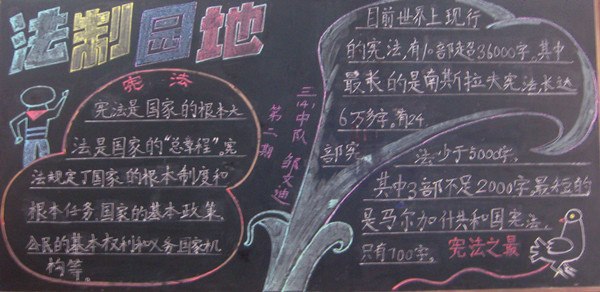 法制园地
宪法
宪法是国家的根本大
法是国家的“总章程”。宪
法规定了国家的根本制度和
根本任务国家的基本政策
公民的基本权利和义务国家机
构等。
三(4)中队
第二期
邹文迪
目前世界上现行
的宪法,有10部超36000字,其中
最长的是南斯拉夫宪法,长达
6万多字。有24
部宪法少于5000字,
其中3部不足2000字,最短的
是马尔加什共和国宪法,
只有700字。
宪法之最